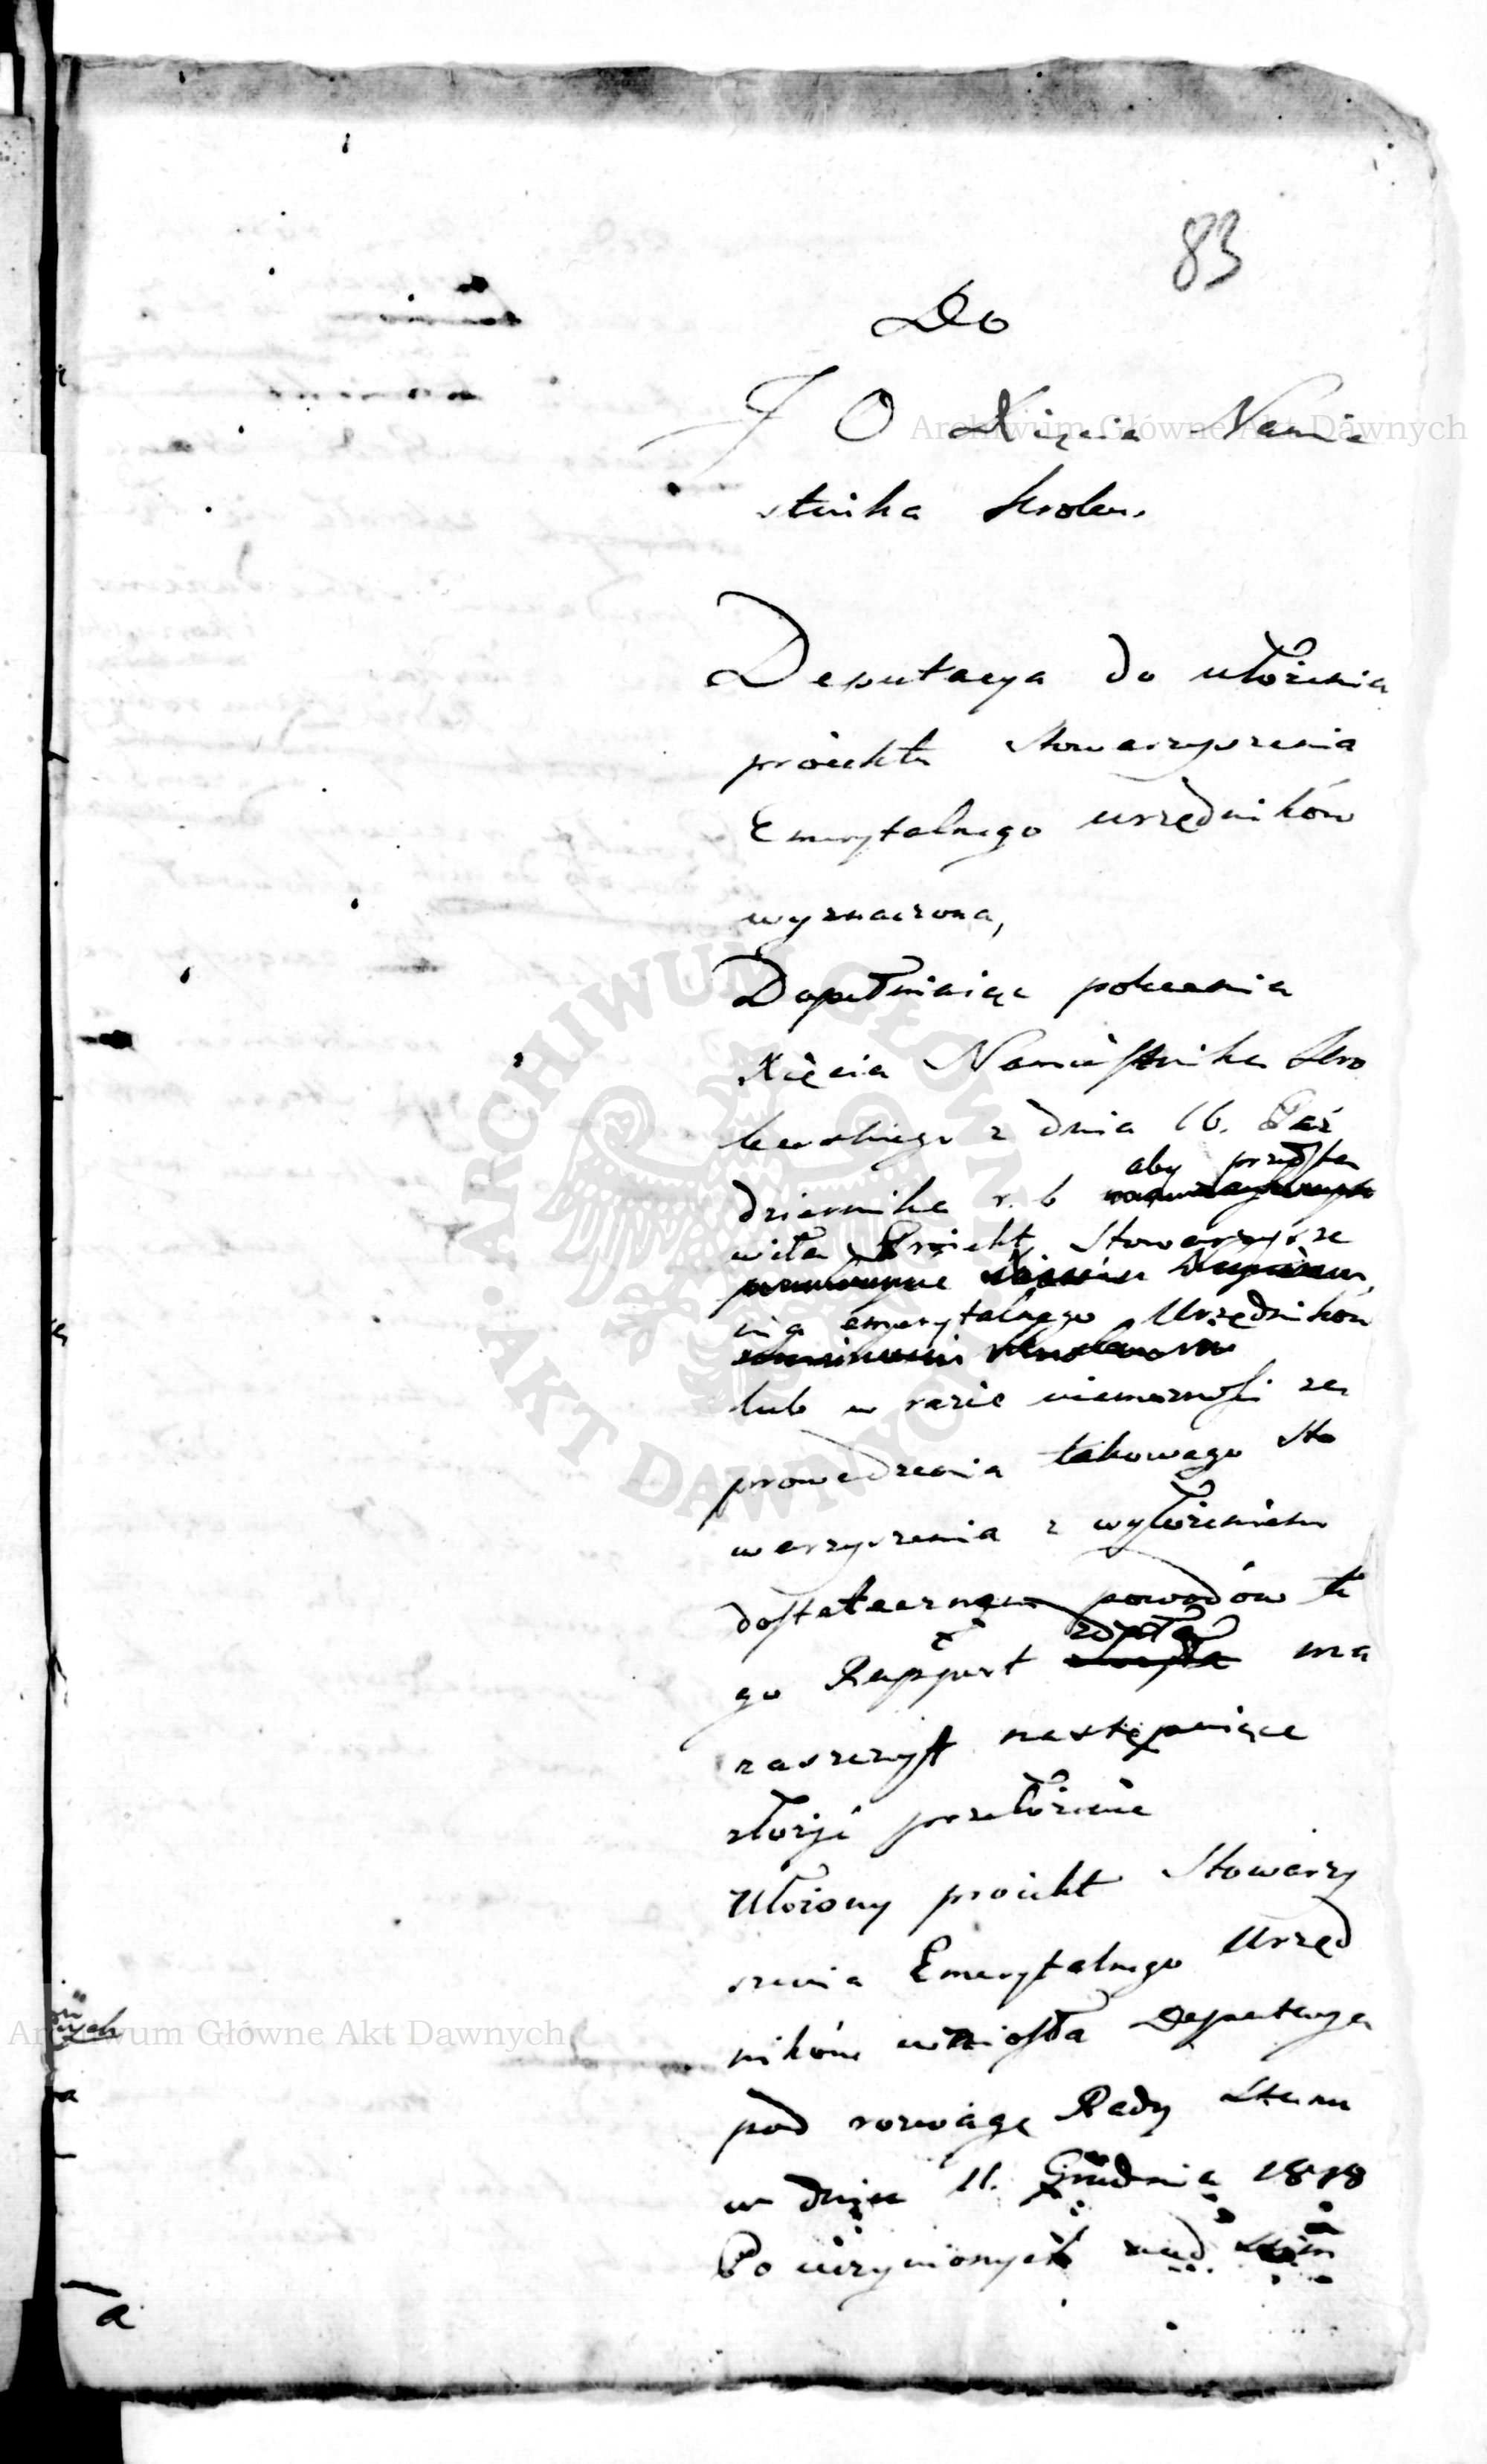 83
Do
J O Xięcia Namie
stnika Krolew.
Deputacya do ułożenia
proiektu Stowarzyszenia
Emerytalnego urzędników
wyznaczona,
Dopełniaiąc polecenia
Xięcia Namiestnika Kro
lewskiego z dnia 16. Paź
aby przedsta
dziernika r. b
wiła Proiekt Stowarzysze
nia emerytalnego Urzędników
lub w razie niemożności za
prowadzenia takowego Sto
warzyszenia z wyłożeniem
dostatecznym powodów te
zdała
go Rapport ma
zaszczyt następuiące
złożyć przełożenie
Ułożony proiekt Stowarzy
szenia Emerytalnego Urzęd
ników wniosła Deputacya
pod rozwagę Rady Stanu
w dniu 11. Grudnia 1818
Po uczynionych nad
a
Archiwum Główne Akt Dawnych
ARCHIWUM GŁÓWNE AKT DAWNYCH
Archiwum Główne Akt Dawnych